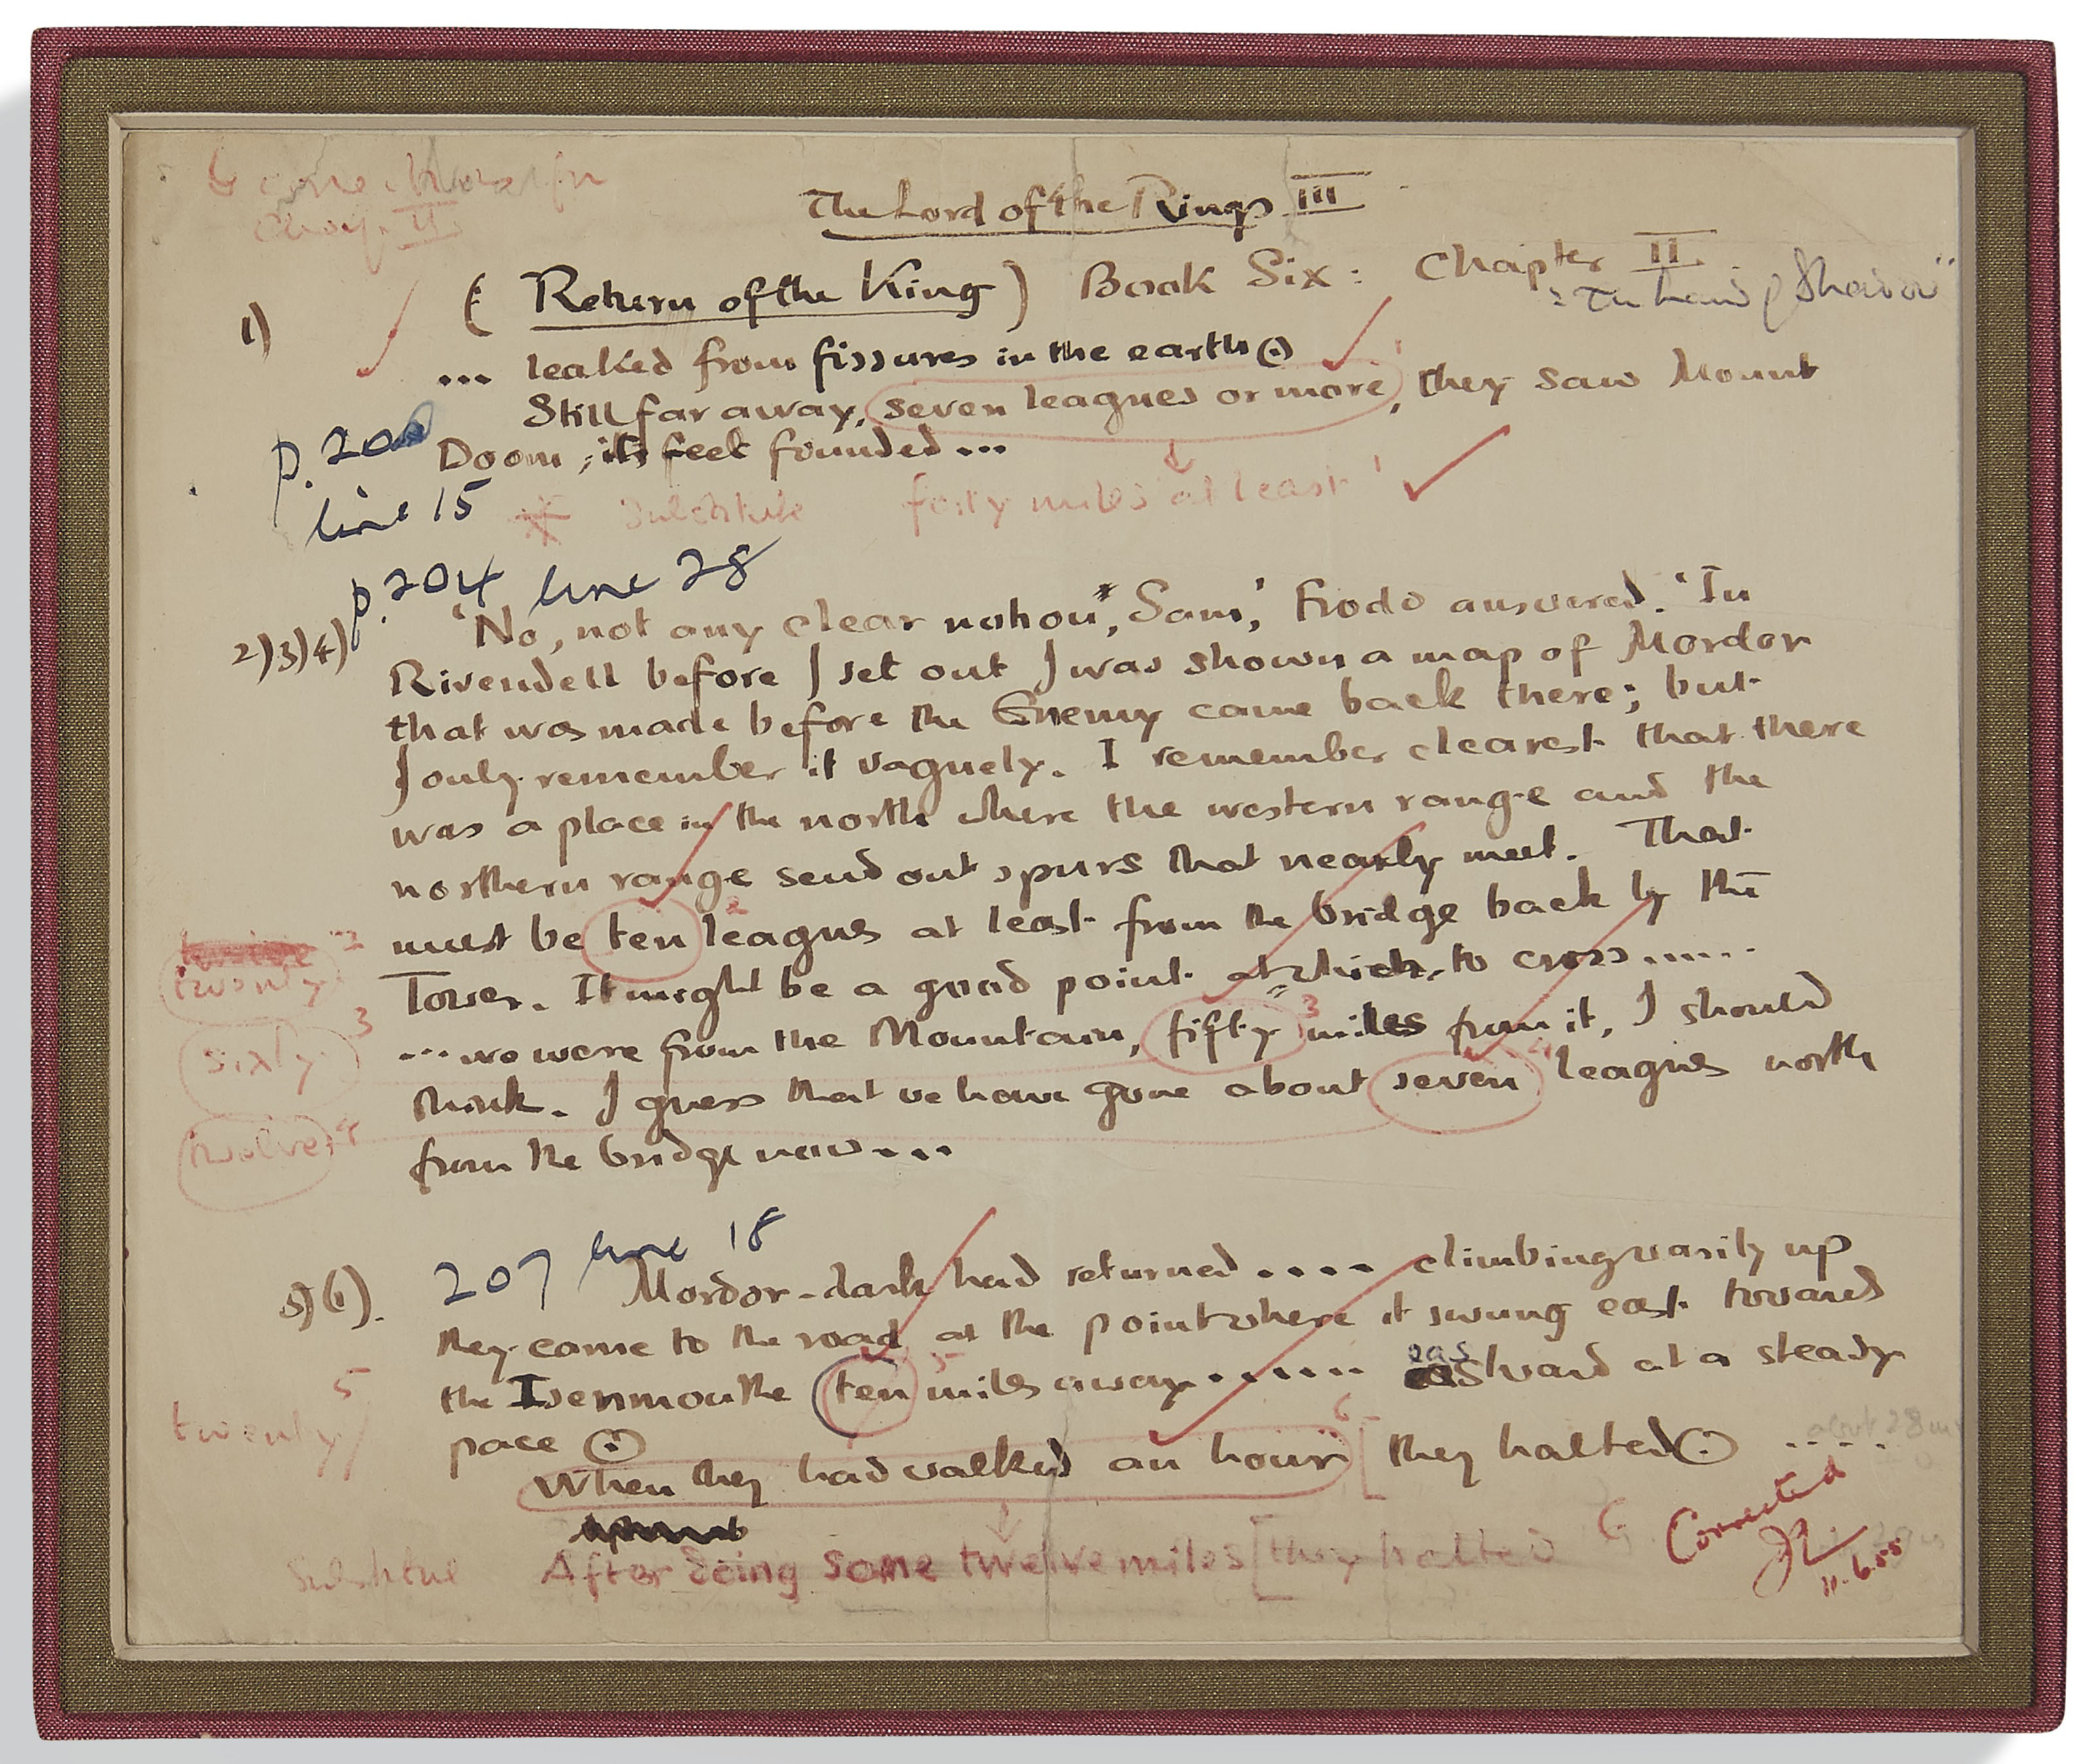 6 corrections in
Chap. II
The Lord of the Rings III
(Return of the King) Book Six: Chapter II
: The Land of Shadow"
1)
... leaked from fissures in the earth(.)
Still far away, seven leagues or more, 1 they saw Mount
Doom, its feet founded...
p. 200
line 15
* Substitute forty miles at least' 1
p. 204 line 28
2)3)4) 'No, not any clear nohow*, Sam,' Frodo answered. 'In
Rivendell before I set out I was shown a map of Mordor
that was made before the Enemy came back there; but
I only remember it vaguely. I remember clearest that there
was a place in the north where the western range and the
northern range send out spurs that nearly meet. That
must be ten 2 leagues at least from the bridge back by the
2
twenty
Tower. It might be a good point at which to cross......
sixty 3
...we were from the Mountain, fifty 3 miles from it, I should
think. I guess that we have gone about seven 4 leagues north
twelve 4
from the bridge now...
207 line 18
5)6). Mordor-dark had returned .... climbing warily up
they came to the road, at the point where it swung east towards
the Isenmouthe ten 5 miles away....... eastward at a steady
eas
twenty/ 5
pace (.)
When they had walked an hour 6 [ they halted(.) ....
about 28 m
Substitute After doing some twelve miles [they halted 6
Corrected
11.6.55